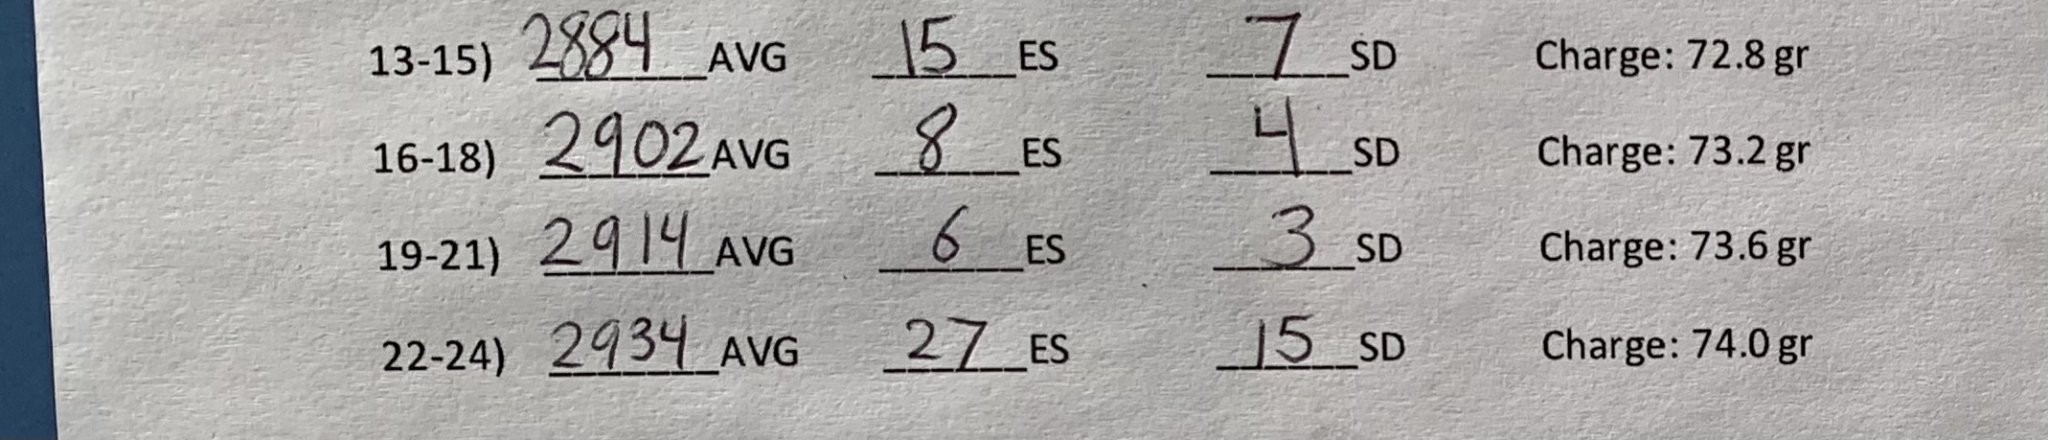 13-15) 2884 AVG 15 ES 7 SD Charge: 72.8 gr
16-18) 2902 AVG 8 ES 4 SD Charge: 73.2 gr
19-21) 2914 AVG 6 ES 3 SD Charge: 73.6 gr
22-24) 2934 AVG 27 ES 15 SD Charge: 74.0 gr